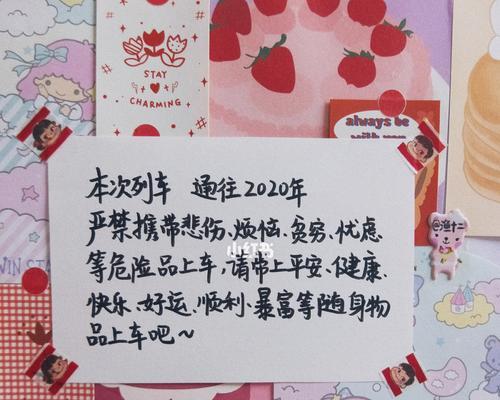 STAY
CHARMING
always be
本次列车 通往2020年
严禁携带悲伤、烦恼、贫穷、忧虑
等危险品上车,请带上平安、健康、
快乐、好运、顺利、暴富等随身物
品上车吧~
小红书
@渔十二